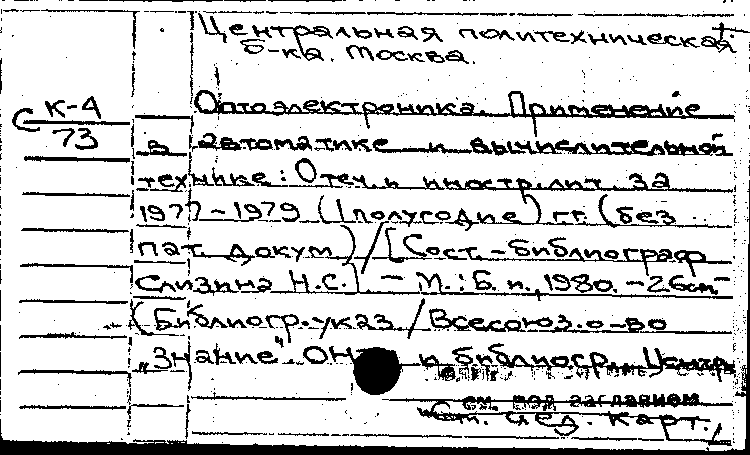 Центральная политехническая
б-ка. Москва.
С К-4
73
Оптоэлектроника. Применение
в автоматике и вычислительной
технике: Отеч. и иностр. лит. за
1977-1979 (I полугодие) г.г. (без
пат. докум.) / [Сост.-библиограф
Слизина Н.С.]. - М.: Б. и., 1980. - 26 с. -
(Библиогр. указ. / Всесоюз. о-во
„Знание". и библиогр. Центр.
см. под заглавием
См. след. карт.